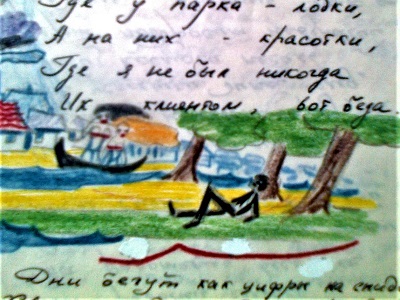 Где у парка - лодки,
А на них - красотки,
Где я не был никогда
Их клиентом, вот беда.
Дни бегут как цифры на